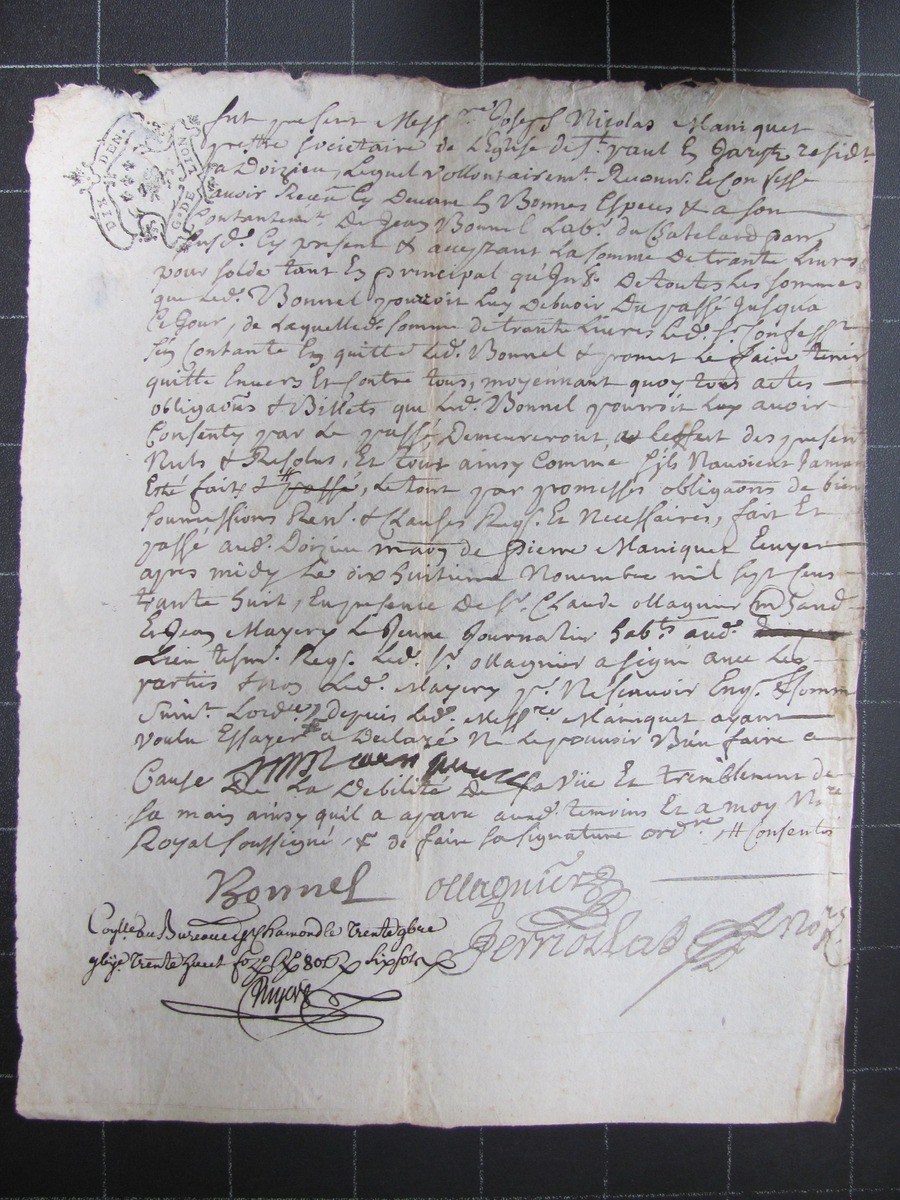 fut present Mess.re Joseph Nicolas Maniquet
pre.tre societaire de L'Eglise de S.t paul En Jarest resid.t
a Doizieu, Lequel vollontairem.t Reconu. Et Confesse
avoir Receu Cy Devant En Bonnes Especes & a son
Contantem.t De Jean Bonnel Lab.r du Chatelard parr
susd.e Cy present & acceptant La somme De trante Livres
pour solde tant En principal qu'Jn.ts De toutes Les sommes
que Led. Bonnel pourroit Luy Debvoir Du passé Jusqua
Ce Jour, de Laquelle d. somme de trante Livres Led. S.r Confess.t
s'en Contante En quitte Led. Bonnel & promet Le faire tenir
quitte Envers Et Contre tous, moyennant quoy tous actes
obligaõns & Billets que Led. Bonnel pourroit Luy avoir
Consenty par Le passé Demeureront a Leffait des presen
Nuls & Resolus, Et tout ainsy Comme s'ils Navoient Jamais
Esté faits & passé, Le tout par promesses obligaõns de bien
soumissions Ren.s & Clauses Reqs. Et Necessaires, fait Et
passé aud. Doizieu maõn de pierre Maniquet Ecuyer
apres midy Le dix huitieme Novembre mil sept cens
trante huit, En presence De S.r Claude ollagnier mchand
Et Jean Mayery Le Jeune Journalier hab.ts aud.
Lieu tesm. Reqs. Led. S.r ollagnier a signé avec Les
parties & non Led. Mayery p.r Ne scavoir Enqs. & somm
suiv.t Lord.ce depuis Led. Mess.re Maniquet ayant
voulu Essayer a Declaré Ne Le pouvoir Bien faire a
Cause De La Debilité De sa vüe Et tremblement de
sa main ainsy quil a aparu aud. temoins Et a moy No.re
Royal soussigné, & de faire sa signature ord.re # Consentis
Bonnel ollagnier
Perriollat No.re R
Con.lle au Bureau de S.t Chamond le trente 9bre
trente huit fo Rx six sols
DEN.
G. DE LION